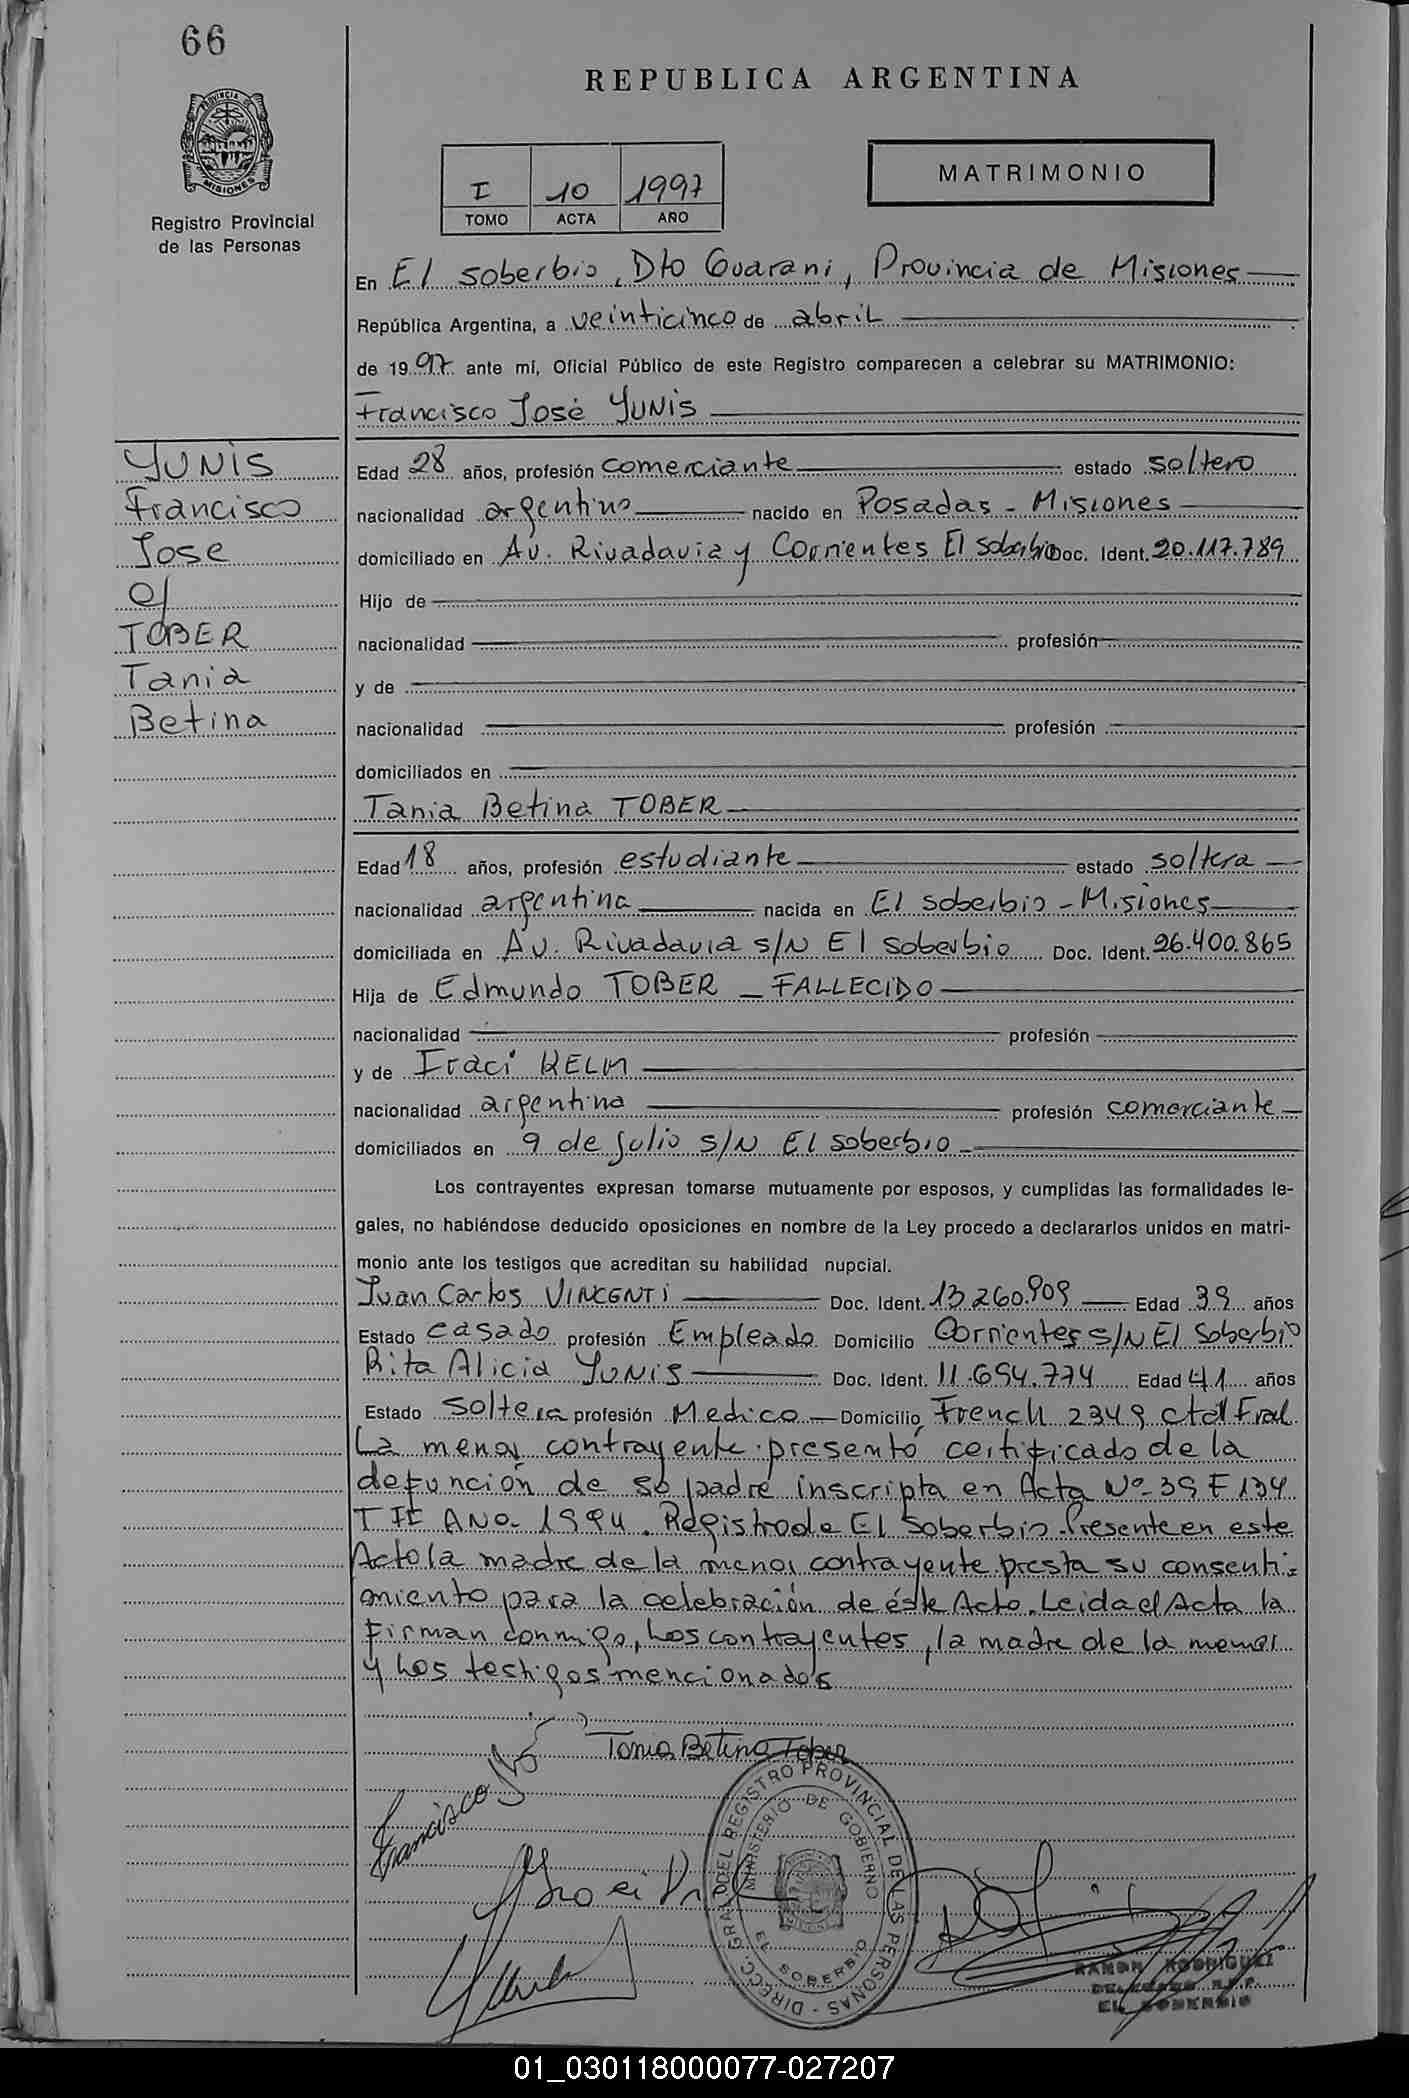 66
REPUBLICA ARGENTINA
PROVINCIA DE MISIONES
Registro Provincial
de las Personas
I 10 1997
TOMO ACTA AÑO
MATRIMONIO
En El Soberbio, Dto Guarani, Provincia de Misiones
República Argentina, a veinticinco de abril
de 1997 ante mí, Oficial Público de este Registro comparecen a celebrar su MATRIMONIO:
Francisco José YUNIS
YUNIS
Francisco
Jose
c/
TOBER
Tania
Betina
Edad 28 años, profesión comerciante estado soltero
nacionalidad argentino nacido en Posadas - Misiones
domiciliado en Av. Rivadavia y Corrientes El Soberbio Doc. Ident. 20.117.789
Hijo de
nacionalidad profesión
y de
nacionalidad profesión
domiciliados en
Tania Betina TOBER
Edad 18 años, profesión estudiante estado soltera
nacionalidad argentina nacida en El Soberbio - Misiones
domiciliada en Av. Rivadavia s/N El Soberbio Doc. Ident. 26.400.865
Hija de Edmundo TOBER - FALLECIDO
nacionalidad profesión
y de Iraci KELM
nacionalidad argentina profesión comerciante
domiciliados en 9 de Julio s/N El Soberbio
Los contrayentes expresan tomarse mutuamente por esposos, y cumplidas las formalidades le-
gales, no habiéndose deducido oposiciones en nombre de la Ley procedo a declararlos unidos en matri-
monio ante los testigos que acreditan su habilidad nupcial.
Juan Carlos VINCENTI Doc. Ident. 13.260.909 Edad 39 años
Estado casado profesión Empleado Domicilio Corrientes s/N El Soberbio
Rita Alicia YUNIS Doc. Ident. 11.694.774 Edad 41 años
Estado Soltera profesión Medico Domicilio French 2349 Ctal Fral
La menor contrayente presentó certificado de la
defunción de su padre inscripta en Acta Nº 39 F 134
T II Año 1994. Registro de El Soberbio. Presente en este
Acto la madre de la menor contrayente presta su consenti-
miento para la celebración de éste Acto. Leida el Acta la
Firman conmigo, Los contrayentes, la madre de la menor
y Los testigos mencionados
Tania Betina Tober
Francisco
DIRECC. GRAL. DEL REGISTRO PROVINCIAL DE LAS PERSONAS
MINISTERIO DE GOBIERNO
EL SOBERBIO
RAMON RODRIGUEZ
DELEGADO R.P.P.
EL SOBERBIO
01_030118000077-027207